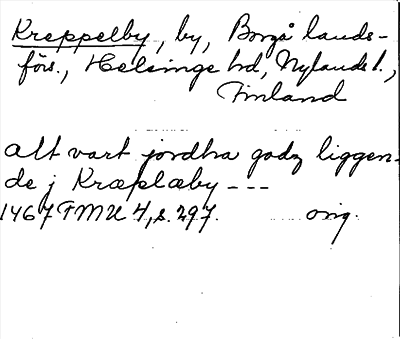 Kreppelby, by, Borgå lands-
förs., Helsinge hd, Nylands l.,
Finland
alt vart jordha godz liggen-
de j Kræplæby ---
1467 FMU 4, s. 297. orig.